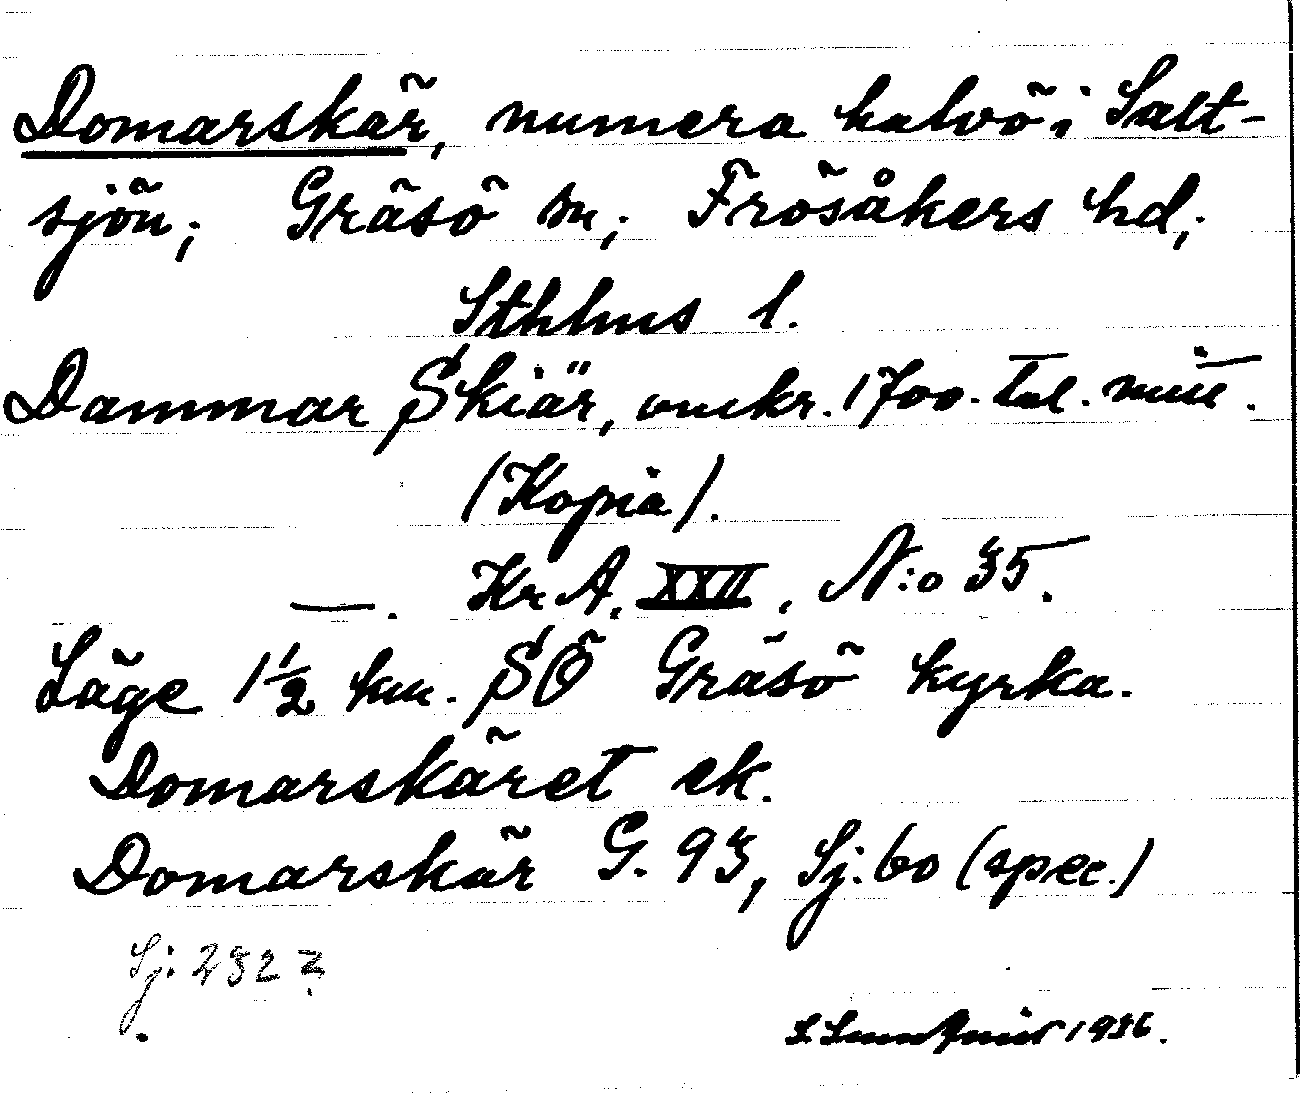 Domarskär, numera halvö i Salt-
sjön; Gräsö sn; Frösåkers hd;
Sthlms l.
Dammar Skiär, omkr. 1700-tal. mitt.
(Kopia).
—. Kr A. XXII, N:o 35.
Läge 1½ km. SÖ Gräsö kyrka.
Domarskäret ek.
Domarskär G. 93, Sj. 60 (spec.)
Sj: 232
1936.